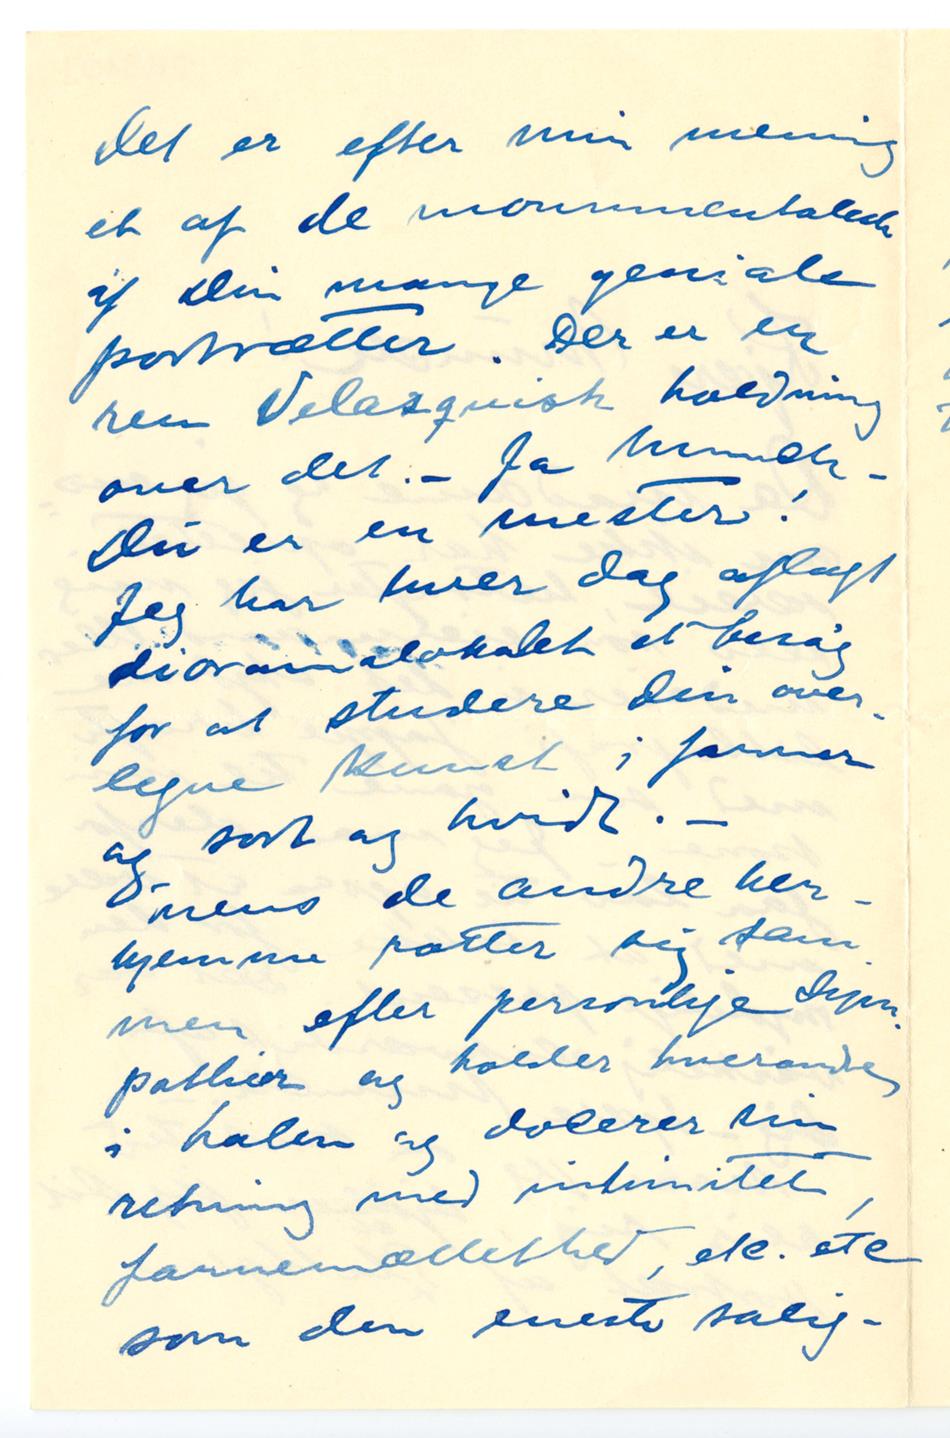 Det er efter min mening
et af de monumentaleste
af Din mange geniale
portrætter. Der er en
ren Velazquisk holdning
over det. – Ja Munch –
Du er en mester!
Jeg har hver dag aflagt
dioramalokalet et besøg
for at studere Din over-
legne Kunst i farver
og sort og hvidt. –
og mens de andre her-
hjemme rotter sig sam
men efter personlige Sym-
pathier og holder hverandre
i halen og docerer sin
retning med intimitet,
farvemættethed, etc. etc
som den eneste salig-